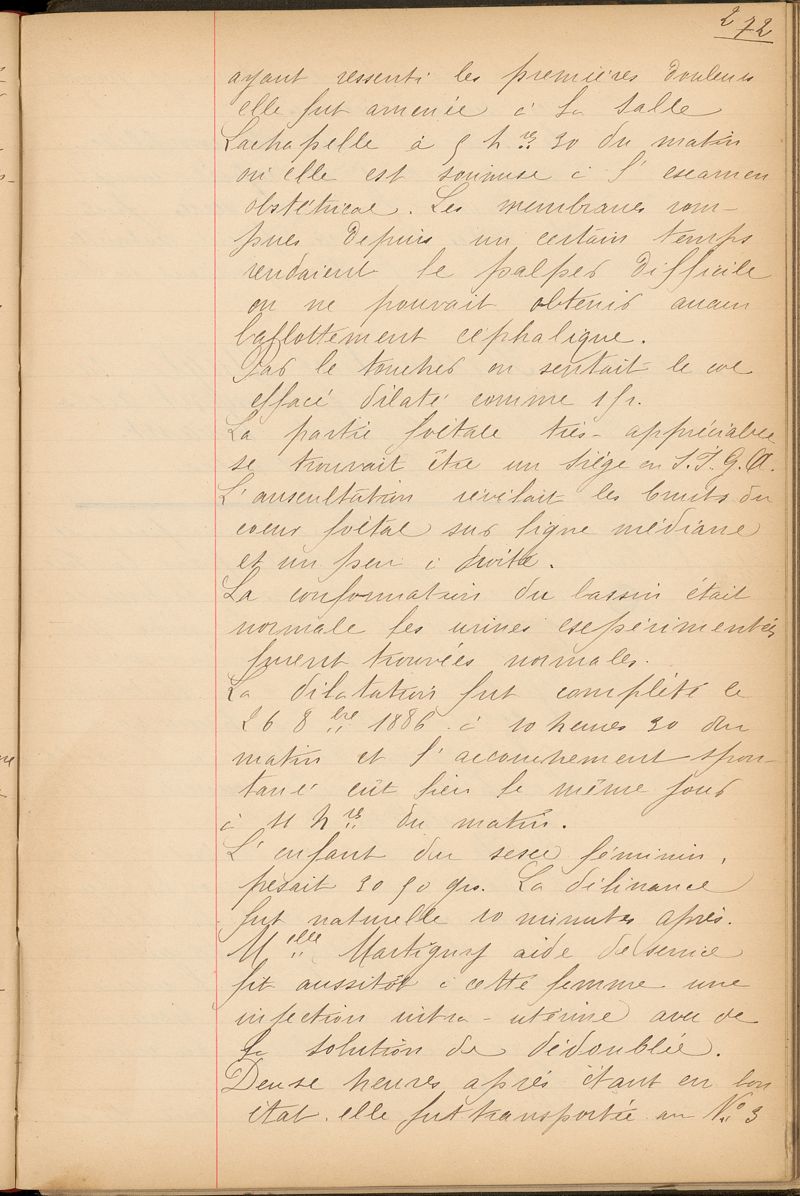 272
ayant ressenti les premières douleurs
elle fut amenée à la salle
Lachapelle à 5 h res 30 du matin
où elle est soumise à l'examen
obstétrical. Les membranes rom-
pues depuis un certain temps
rendaient le palper difficile
on ne pouvait obtenir aucun
ballottement céphalique.
Par le toucher on sentait le col
effacé dilaté comme 1 fr.
La partie foetale très-appréciable
se trouvait être un siège en S.I.G.A.
L'auscultation révélait les bruits du
coeur foetal sur ligne médiane
et un peu à droite.
La conformation du bassin était
normale les urines expérimentées
furent trouvées normales.
La dilatation fut complète le
26 8 bre 1886 à 10 heures 30 du
matin et l'accouchement spon-
tané eût lieu le même jour
à 11 h res du matin.
L'enfant du sexe féminin,
pesait 3050 grs. La délivrance
fut naturelle 10 minutes après.
M elle Martigny aide de service
fit aussitôt à cette femme une
injection intra-utérine avec de
la solution de dédoublée.
Deuse heures après étant en bon
état. elle fut transportée au No 3